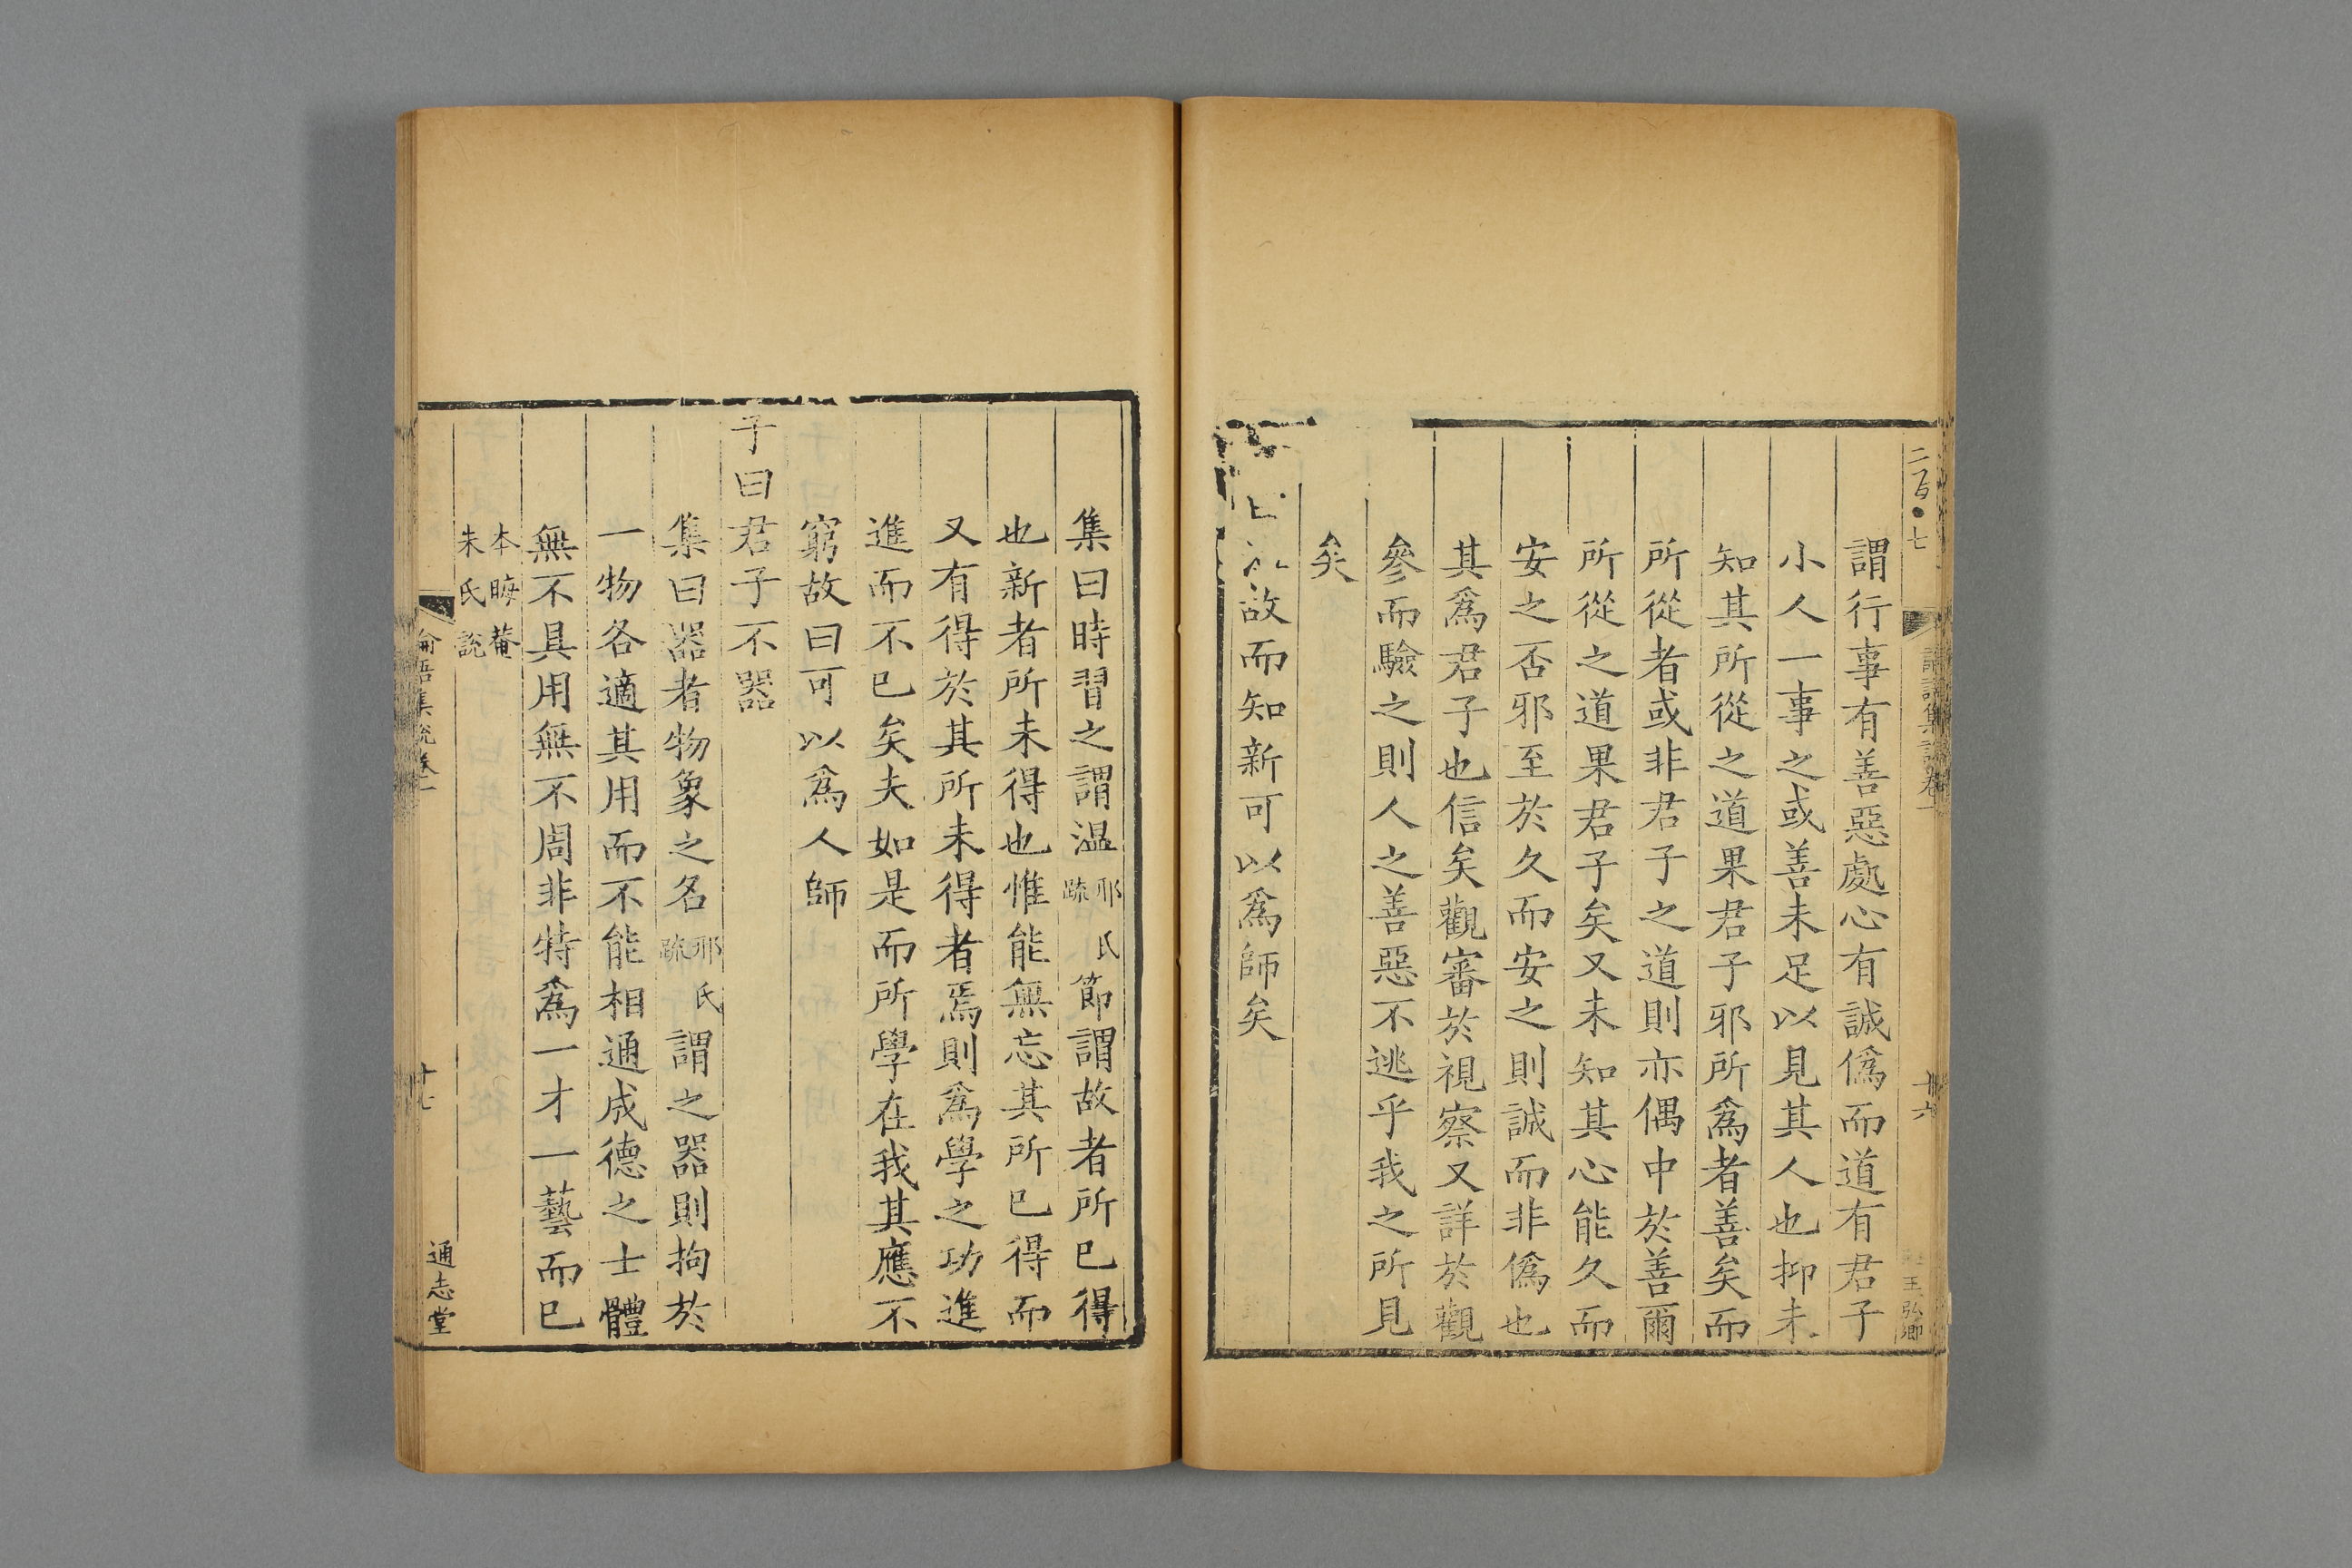 二百·七
集說卷一
十六
王弘卿
謂行事有善惡處心有誠僞而道有君子
小人一事之或善未足以見其人也抑未
知其所從之道果君子邪所爲者善矣而
所從者或非君子之道則亦偶中於善爾
所從之道果君子矣又未知其心能久而
安之否邪至於久而安之則誠而非僞也
其爲君子也信矣觀審於視察又詳於觀
參而驗之則人之善惡不逃乎我之所見
矣
故而知新可以爲師矣
集曰時習之謂温邢氏疏節謂故者所已得
也新者所未得也惟能無忘其所已得而
又有得於其所未得者焉則爲學之功進
進而不已矣夫如是而所學在我其應不
窮故曰可以爲人師
子曰君子不器
集曰器者物象之名邢氏疏謂之器則拘於
一物各適其用而不能相通成德之士體
無不具用無不周非特爲一才一藝而已
本晦菴朱氏說
論語集說卷一
十七
通志堂